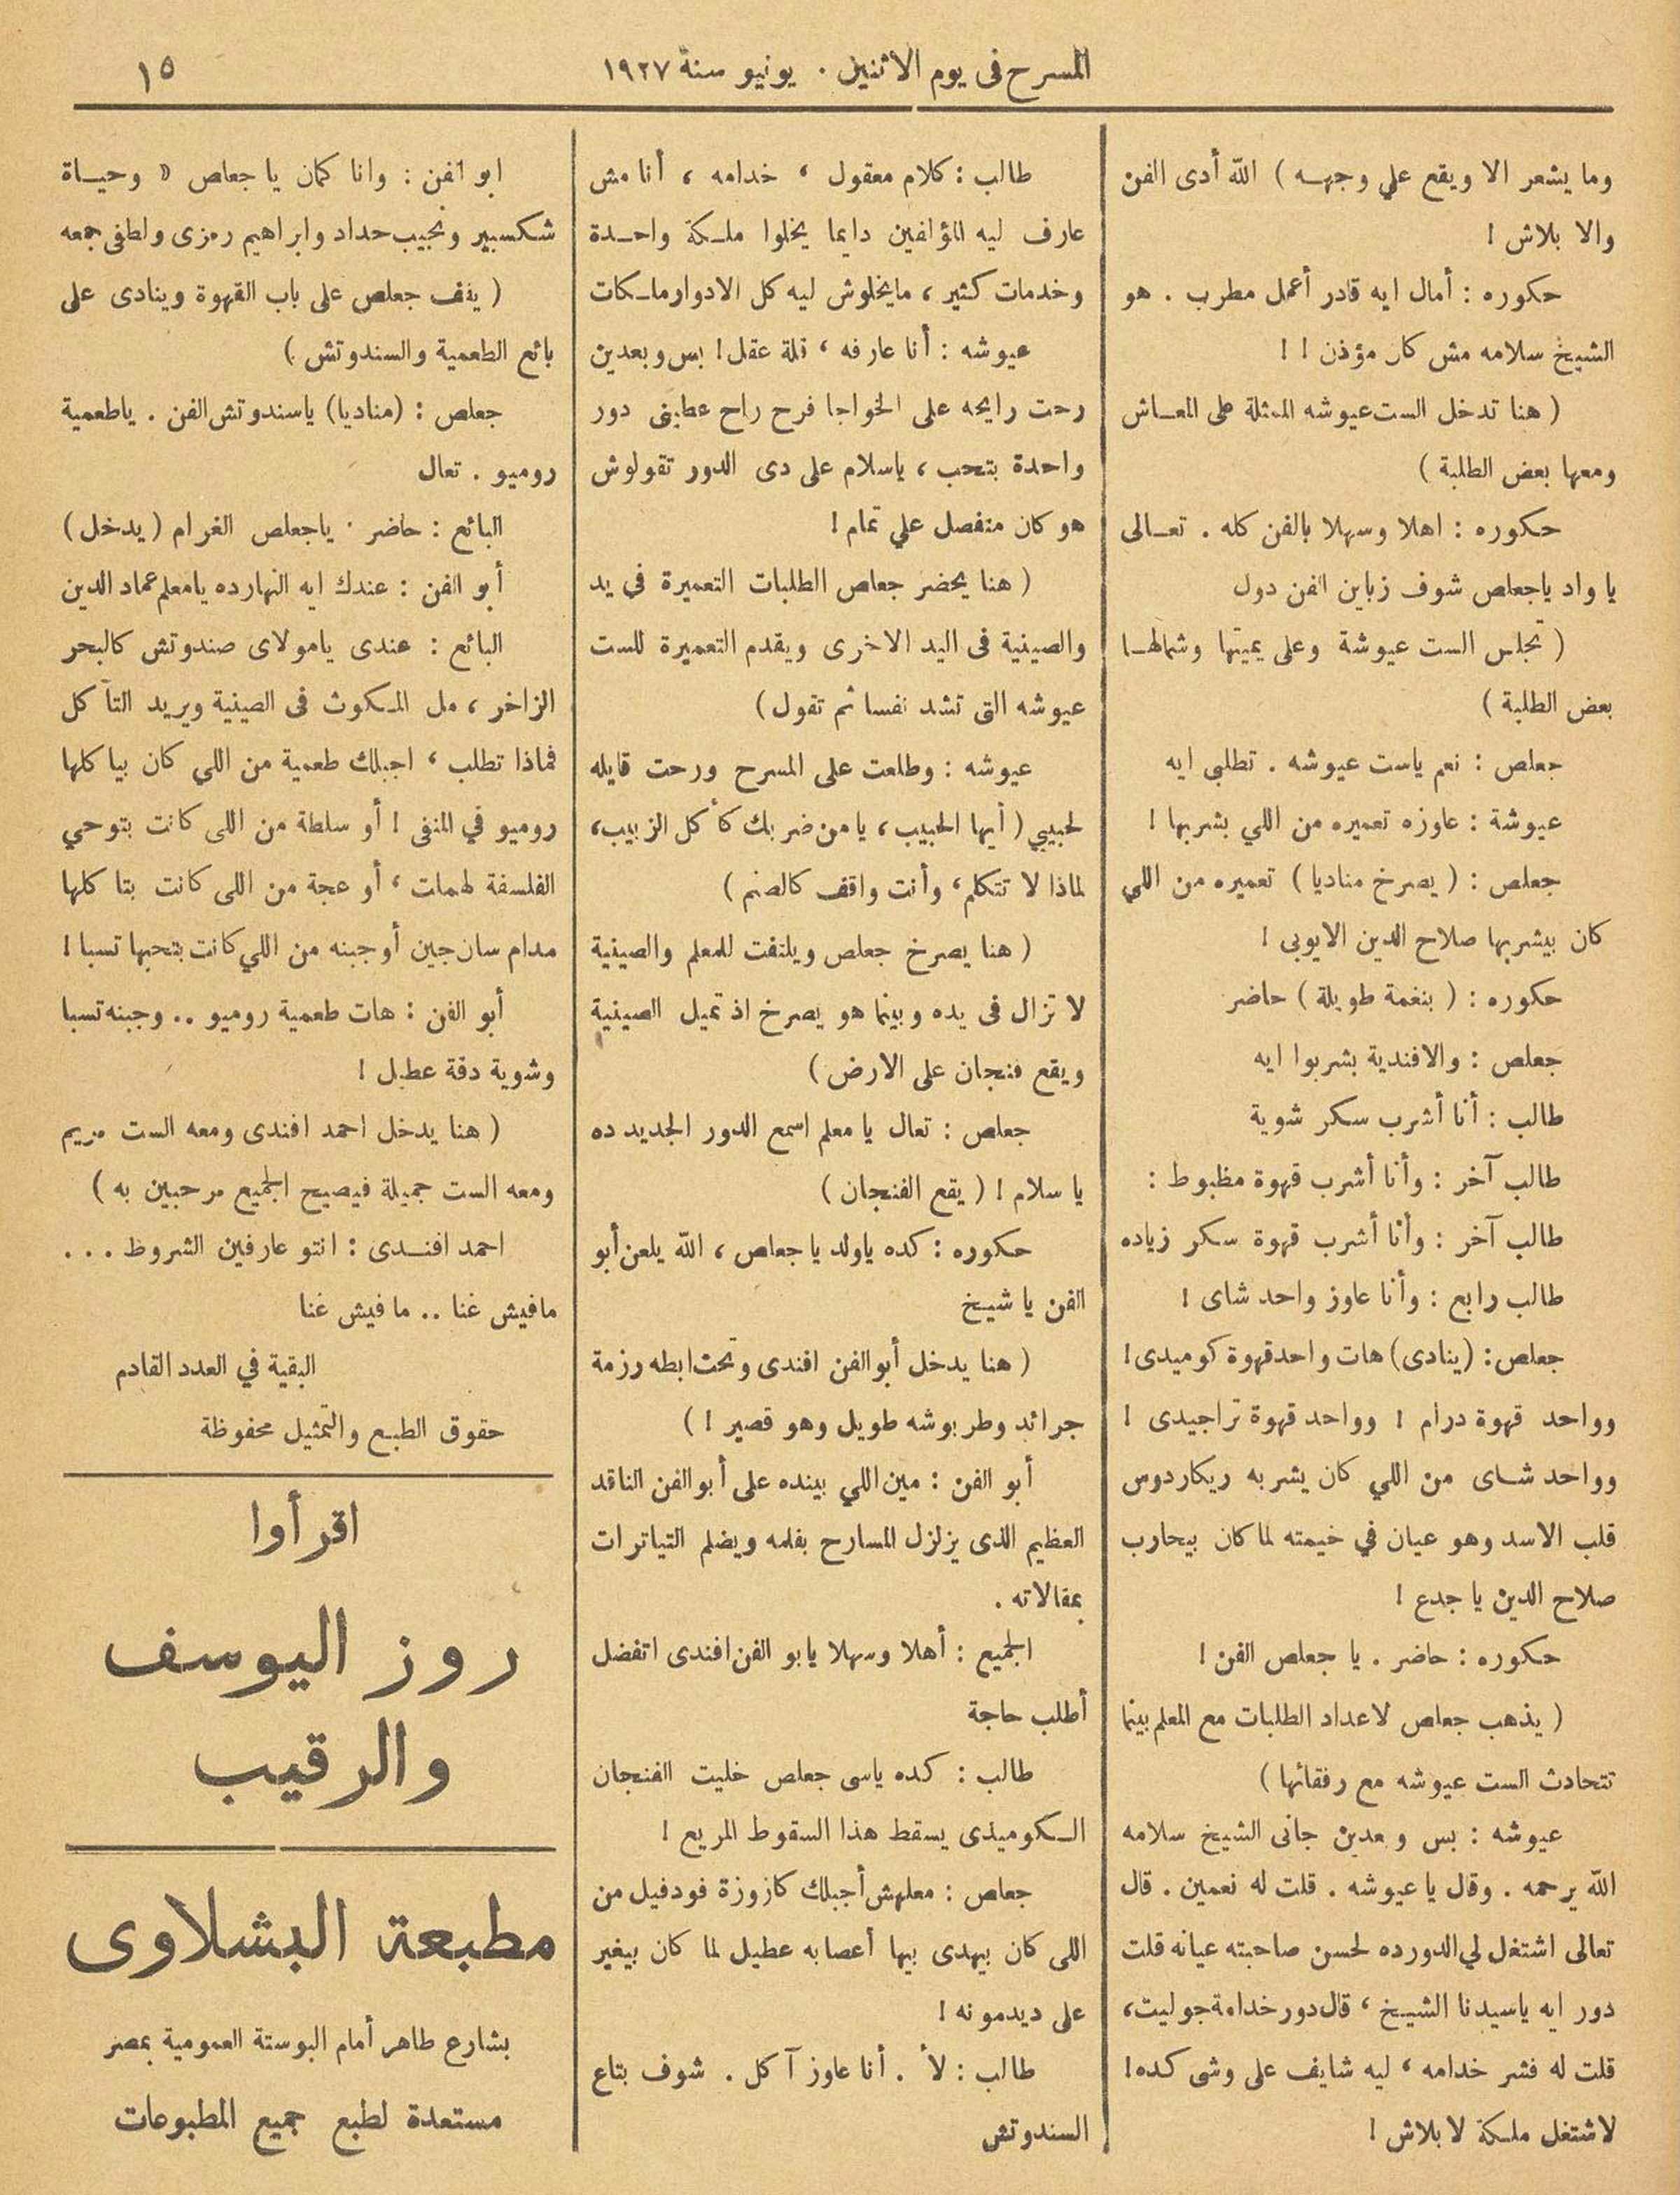 المسرح فى يوم الاثنين ٠ يونيو سنة ١٩٢٧
١٥
وما يشعر الا ويقع علي وجهه ) الله أدى الفن
والا بلاش !
حكوره : أمال ايه قادر أعمل مطرب . هو
الشيخ سلامه مش كان مؤذن ! !
( هنا تدخل الست عيوشه الممثلة على المعاش
ومعها بعض الطلبة )
حكوره : اهلا وسهلا بالفن كله . تعالى
يا واد ياجعلص شوف زباين الفن دول
( تجلس الست عيوشة وعلى يمينها وشمالها
بعض الطلبة )
جعلص : نعم ياست عيوشه . تطلبى ايه
عيوشة : عاوزه تعميره من اللي بشربها !
جعلص : ( يصرخ مناديا ) تعميره من اللي
كان بيشربها صلاح الدين الايوبى !
حكوره : ( بنغمة طويلة ) حاضر
جعلص : والافندية بشربوا ايه
طالب : أنا أشرب سكر شوية
طالب آخر : وأنا أشرب قهوة مظبوط :
طالب آخر : وأنا أشرب قهوة سكر زياده
طالب رابع : وأنا عاوز واحد شاى !
جعلص : (ينادى) هات واحد قهوة كوميدى !
وواحد قهوة درام ! وواحد قهوة تراجيدى !
وواحد شاى من اللي كان يشربه ريكاردوس
قلب الاسد وهو عيان في خيمته لما كان بيحارب
صلاح الدين يا جدع !
حكوره : حاضر . يا جعلص الفن !
( يذهب جعلص لاعداد الطلبات مع المعلم بينما
تتحادث الست عيوشه مع رفقائها )
عيوشه : بس وبعدين جانى الشيخ سلامه
الله يرحمه . وقال يا عيوشه . قلت له نعمين . قال
تعالى اشتغل لي الدور ده لحسن صاحبته عيانه قلت
دور ايه ياسيدنا الشيخ ، قال دور خدامة جوليت ،
قلت له فشر خدامه ، ليه شايف على وشى كده !
لاشتغل ملكة لا بلاش !
طالب : كلام معقول ، خدامه ، أنا مش
عارف ليه المؤلفين دايما يخلوا ملكة واحدة
وخدمات كثير ، مايخلوش ليه كل الادوار ملكات
عيوشه : أنا عارفه ، قلة عقل ! بس وبعدين
رحت رايحه على الخواجا فرح راح عطينى دور
واحدة بتحب ، ياسلام على دى الدور تقولوش
هو كان متفصل علي تمام !
( هنا يحضر جعلص الطلبات التعميرة في يد
والصينية فى اليد الاخرى ويقدم التعميرة للست
عيوشه التى تشد نفسا ثم تقول )
عيوشه : وطلعت على المسرح ورحت قايله
لحبيبي ( أيها الحبيب ، يا من ضربك كأكل الزبيب ،
لماذا لا تتكلم ، وأنت واقف كالصنم )
( هنا يصرخ جعلص ويلتفت للمعلم والصينية
لا تزال فى يده وبينما هو يصرخ اذ تميل الصينية
ويقع فنجان على الارض )
جعلص : تعال يا معلم اسمع الدور الجديد ده
يا سلام ! ( يقع الفنجان )
حكوره : كده ياولد يا جعلص ، الله يلعن أبو
الفن يا شيخ
( هنا يدخل أبو الفن افندى وتحت ابطه رزمة
جرائد وطربوشه طويل وهو قصير ! )
أبو الفن : مين اللي بينده على أبو الفن الناقد
العظيم الذى يزلزل المسارح بقلمه ويضلم التياترات
بمقالاته .
الجميع : أهلا وسهلا يابو الفن افندى اتفضل
أطلب حاجة
طالب : كده ياسى جعلص خليت الفنجان
الكوميدى يسقط هذا السقوط المريع !
جعلص : معلهش أجبلك كازوزة فودفيل من
اللى كان بيهدى بيها أعصابه عطيل لما كان بيغير
على ديدمونه !
طالب : لأ . أنا عاوز آكل . شوف بتاع
السندوتش
ابو الفن : وانا كمان يا جعلص « وحياة
شكسبير ونجيب حداد وابراهيم رمزى ولطفى جمعه
( يقف جعلص على باب القهوة وينادى على
بائع الطعمية والسندوتش )
جعلص : (مناديا) ياسندوتش الفن . ياطعمية
روميو . تعال
البائع : حاضر . ياجعلص الغرام ( يدخل )
أبو الفن : عندك ايه النهارده يامعلم عماد الدين
البائع : عندى يامولاى صندوتش كالبحر
الزاخر ، مل المكوث فى الصينية ويريد التآكل
فماذا تطلب ، اجبلك طعمية من اللي كان بياكلها
روميو في المنفى ! أو سلطة من اللى كانت بتوحي
الفلسفة لهملت ، أو عجة من اللى كانت بتاكلها
مدام سان جين أو جبنه من اللي كانت بتحبها تسبا !
أبو الفن : هات طعمية روميو .. وجبنه تسبا
وشوية دقة عطيل !
( هنا يدخل احمد افندى ومعه الست مريم
ومعه الست جميلة فيصيح الجميع مرحبين به )
احمد افندى : انتو عارفين الشروط ...
مافيش غنا .. مافيش غنا
البقية في العدد القادم
حقوق الطبع والتمثيل محفوظة
اقرأوا
روز اليوسف
والرقيب
مطبعة البشلاوى
بشارع طاهر أمام البوستة العمومية بمصر
مستعدة لطبع جميع المطبوعات